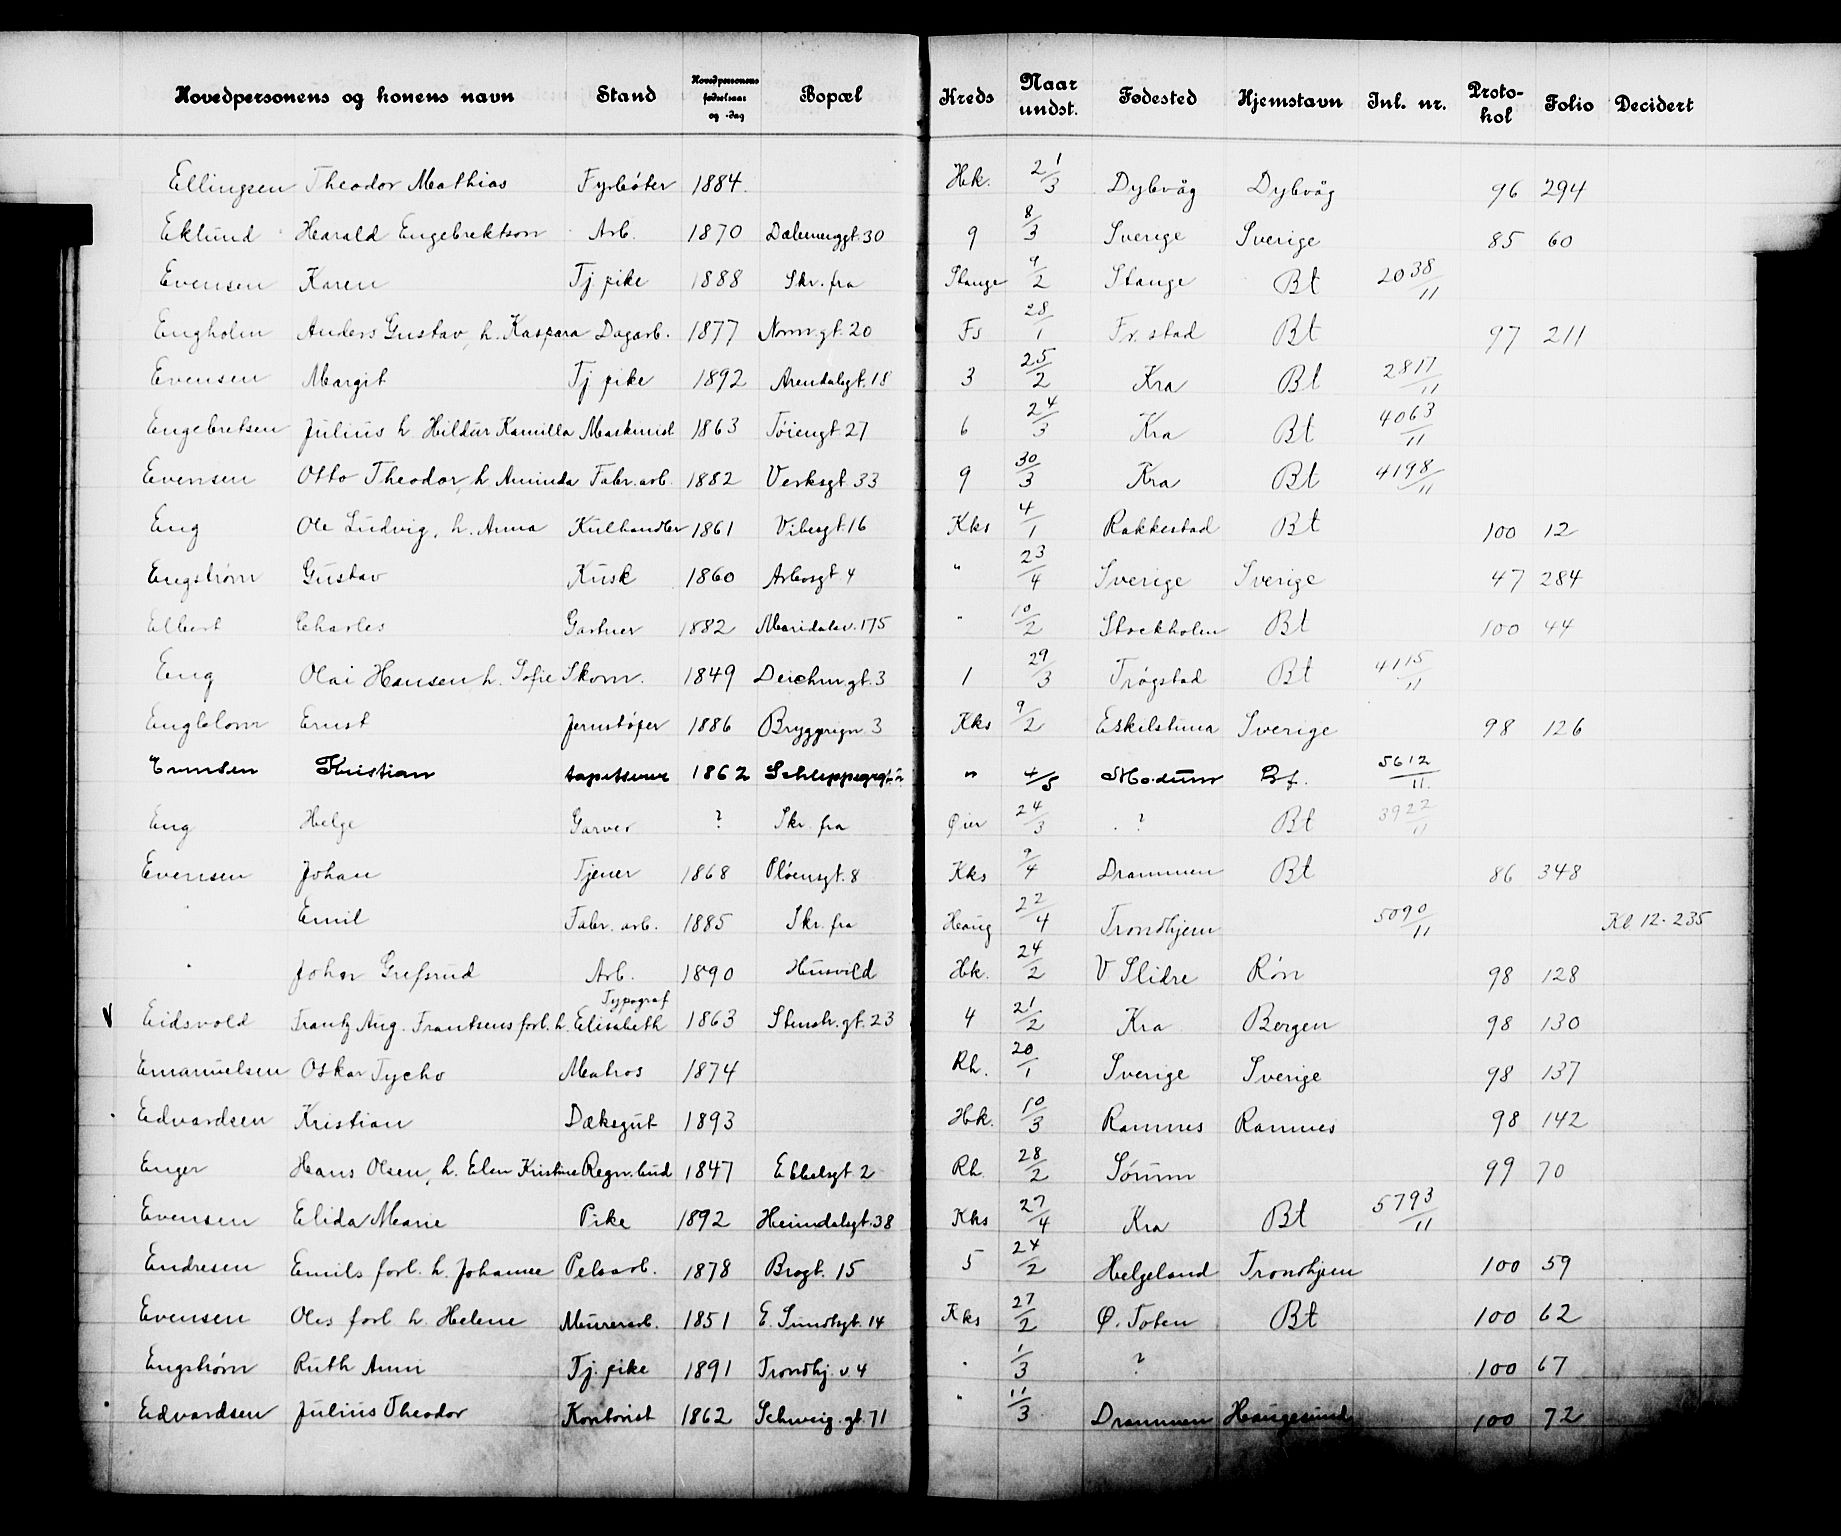 Hovedpersonens og konens navn Stand Hovedpersonens fødselsaar og -dag Bopæl Kreds Naar undst. Fødested Hjemstavn Inl. nr. Proto-kol Folio Decidert
Ellingsen Theodor Mathias Fyrbøter 1884. Hk. 21/3 Dybvåg Dybvåg 96 294
Eklund Harald Engebrektson Arb. 1870 Dælenenggt. 30 9 8/3 Sverige Sverige 85 60
Evensen Karen Tj pike 1888 Skr. fra Stange 9/2 Stange Bt 2038/11
Engholm Anders Gustav, h. Kaspara Dagarb. 1877 Norm. gt. 20 Fs 28/1 Fr. stad Bt 97 211
Evensen Margit Tj pike 1892 Arendalsgt. 18 3 25/2 Kra Bt 2817/11
Engebretsen Julius h Hildur Kamilla Maskinist 1863 Tøiengt 27 6 24/3 Kra Bt 4063/11
Evensen Otto Theodor, h Aminda Fabr. arb. 1882 Verksgt. 33 9 30/3 Kra Bt 4198/11
Eng Ole Ludvig, h. Anna Kulhandler 1861 Vibesgt. 16 Kks 4/1 Rakkestad Bt 100 12
Engstrøm Gustav Kusk 1860 Arbosgt. 4 " 23/4 Sverige Sverige 47 284
Elbert Charles Gartner 1882 Maridalsv. 175 " 10/2 Stockholm Bt 100 44
Eng Olai Hansen h. Sofie Skom. 1849 Deichm. gt. 3 1 29/3 Trøgstad Bt 4115/11
Engblom Ernst Jernstøper 1886 Bryggergn. 3 Kks 9/2 Eskilstuna Sverige 98 126
Kristian tapetserer 1862 " 4/5 Modum Bt. 5612/11.
Eng Helge Garver ? Skr. fra Øier 24/3 ? Bt 3922/11
Evensen Johan Tjener 1868 Pløensgt. 8 Kks 9/4 Drammen Bt 86 348
" Emil Fabr. arb. 1885 Skr. fra Haug 22/4 Trondhjem 5090/11 Kl 12. 235
" Johan Grefsrud Arb. 1890 Husvild Hk. 24/2 V. Slidre Røn 98 128
Typograf
V Eidsvold Frantz Aug. Frantsens forl. h. Elisabeth 1863 Stenstr. gt. 23 4 21/2 Kra Bergen 98 130
Emanuelsen Oskar Tycho Matros 1874 Rh. 20/1 Sverige Sverige 98 137
Edvardsen Kristian Dæksgut 1893 Hk. 10/3 Ramnes Ramnes 98 142
Enger Hans Olsen, h. Elen Kristine Regn. bud 1847 Ebbelsgt 2 Rh. 28/2 Sørum 99 70
Evensen Elida Marie Pike 1892 Heimdalsgt. 38 Kks 27/4 Kra Bt 5793/11
Endresen Emils forl. h. Johanne Pelsarb. 1878 Brogt. 15 5 24/2 Helgeland Trondhjem 100 59
Evensen Oles forl h. Helene Murerarb. 1851 E. Sundtsgt. 14 Kks 27/2 Ø. Toten Bt 100 62
Engstrøm Ruth Anni Tj. pike 1891 Trondhj. v. 4 " 1/3 ? 100 67
Edvardsen Julius Theodor Kontorist 1862 Schweig. gt. 71 " 11/3 Drammen Haugesund 100 72